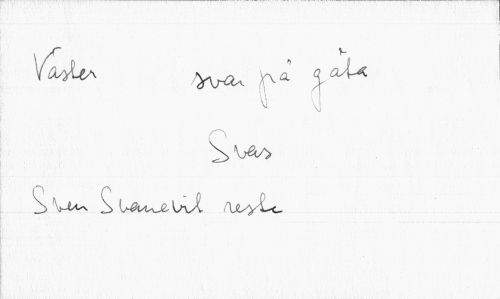 Vaster svar på gåta
Svas
Sven Svanevit reste